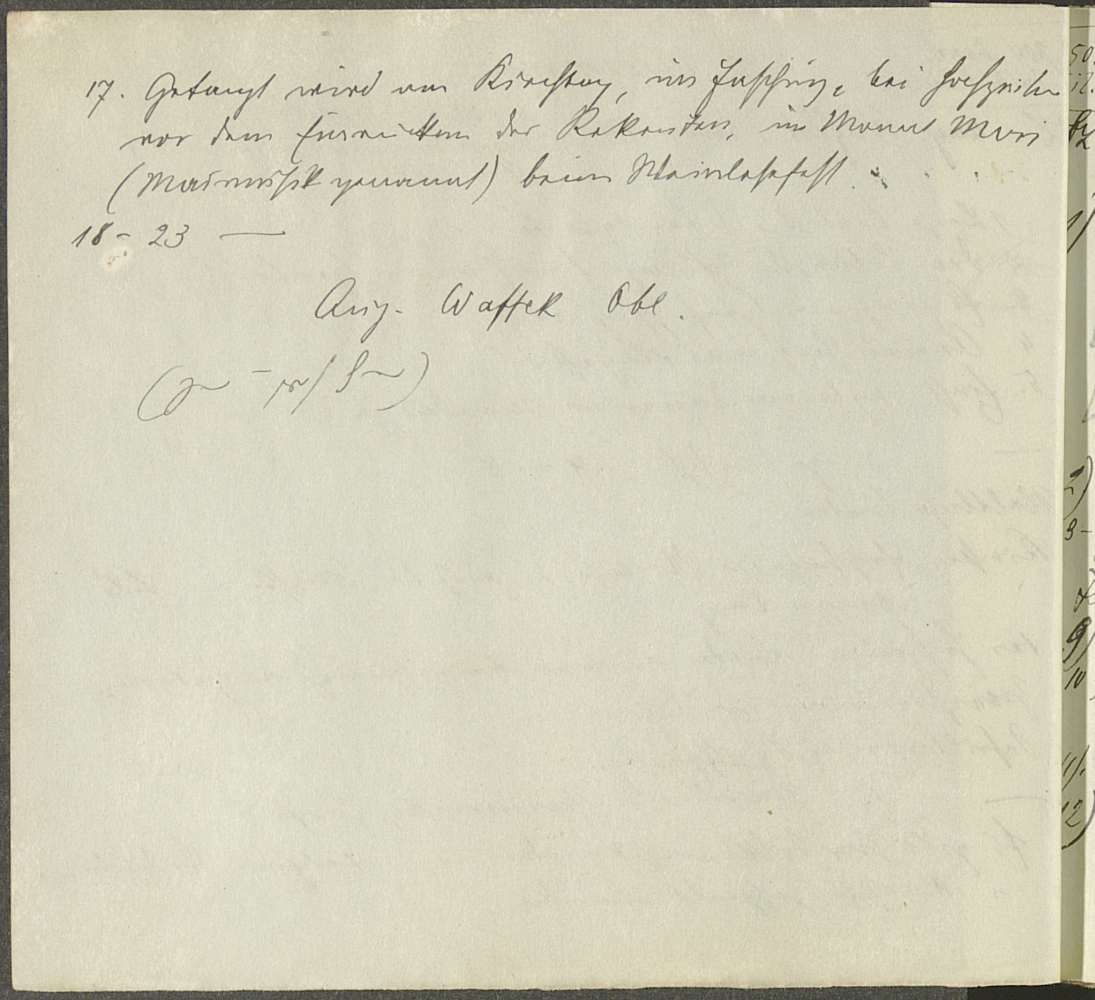 17. Getanzt wird am Kirchtag, im Fasching, bei Hochzeiten
vor dem Einrücken der Rekruten, im Monat Mai
(Maimusik genannt) beim Weinlesefest.
18 - 23 —
Aug. Wassek Obl.